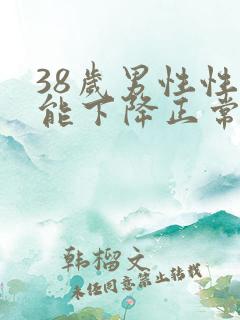 38歲男性性
能下降正常
韩榴文
未经同意禁止转载